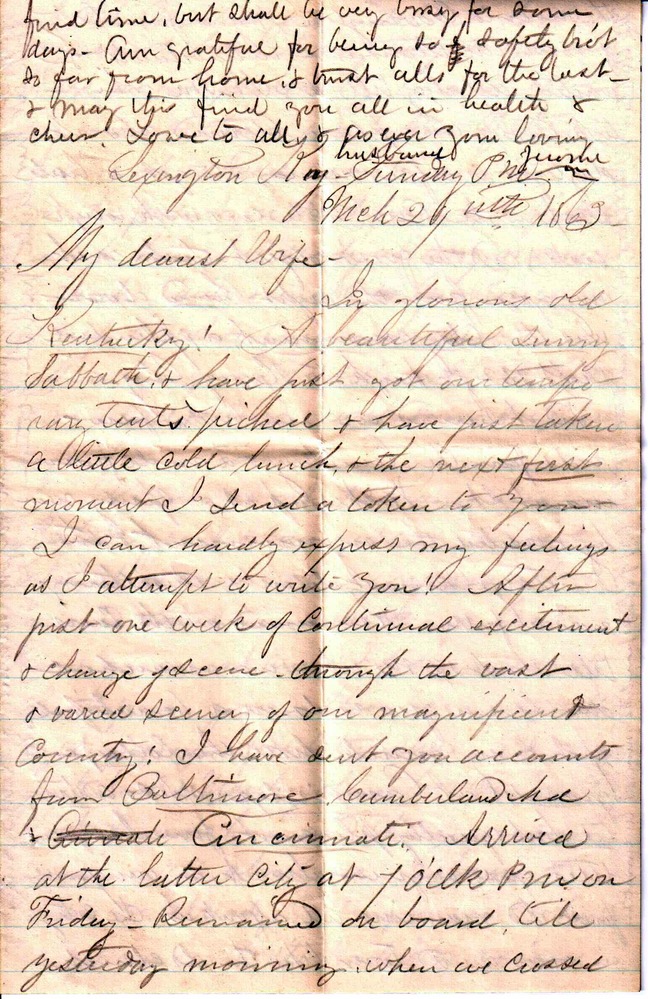 find time, but shall be very busy for some
days - Am grateful for being so safely bro't
so far from home, & trust alls for the best -
& may this find you all in health &
cheer. Love to all, & as ever your loving
husband Jerome
Lexington Ky - Sunday PM
Mch 29th 1863 -
My dearest Wife -
In glorious old
Kentucky! A beautiful sunny
Sabbath, & have just got our tempo-
rary tents piched & have just taken
a little cold lunch, & the next first
moment I send a token to you -
I can hardly express my feelings
as I attempt to write you! After
just one week of continual excitement
& change of scene - through the vast
& varied scenery of our magnificent
Country! I have sent you accounts
from Baltimore, Cumberland Md
& Cincinnati. Arrived
at the latter City at 7 o'clk PM. on
Friday - Remained on board, till
yesterday morning, when we crossed